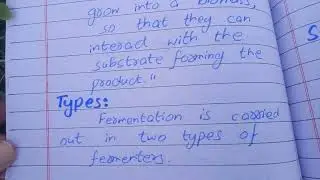 grow into a biomass,
so that they can
interact with the
substrate forming the
product."
Types:
Fermentation is carried
out in two types of
fermenters.
S